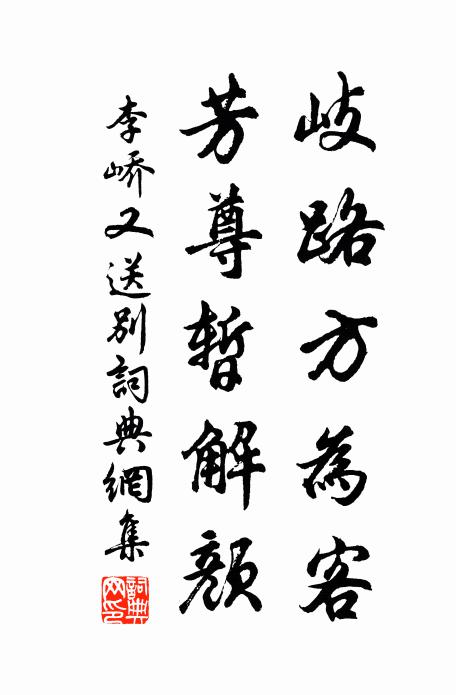 岐路方為客
芳尊暫解顏
李嶠又送別詞典網集
詞典網印